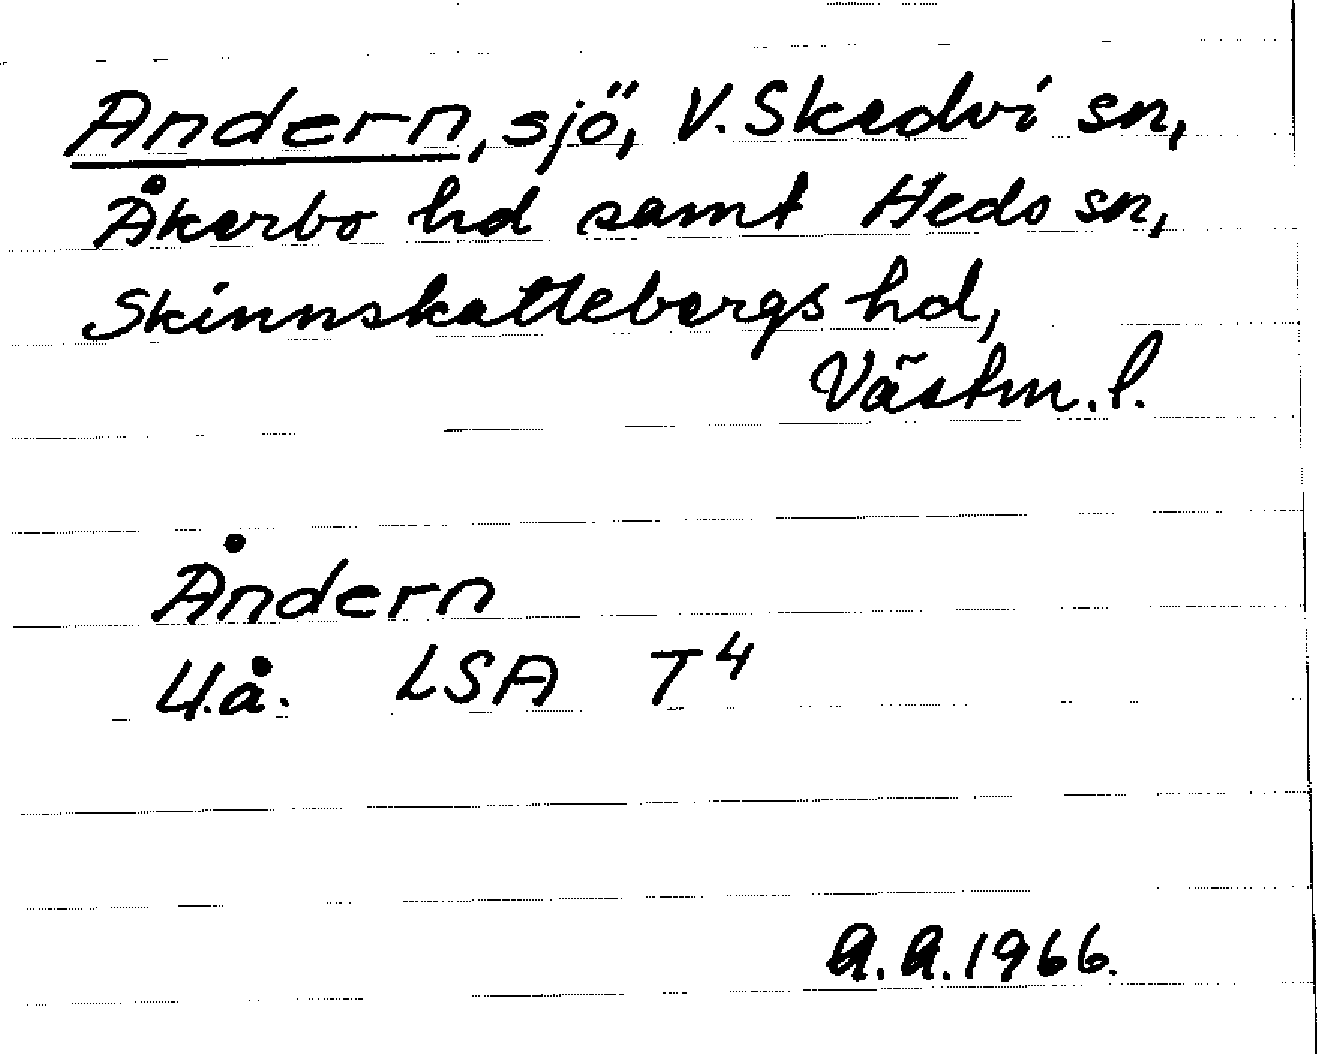 Andern, sjö, V. Skedvi sn,
Åkerbo hd samt Heds sn,
Skinnskattebergs hd,
Västm. l.
Åndern
U.å. LSA T4
A.A. 1966.